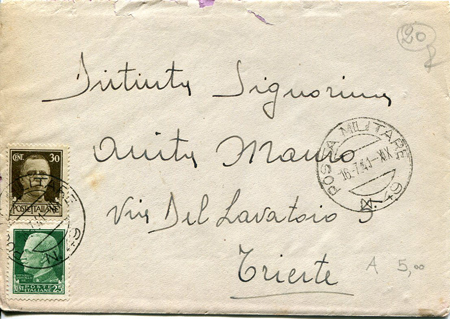 20
Distinta Signorina
Anita Mauro
Via Del Lavatoio 5
Trieste
POSTA MILITARE
16.7.41-XIX
N. 49
CENT. 30
POSTE ITALIANE
25
A 5,00